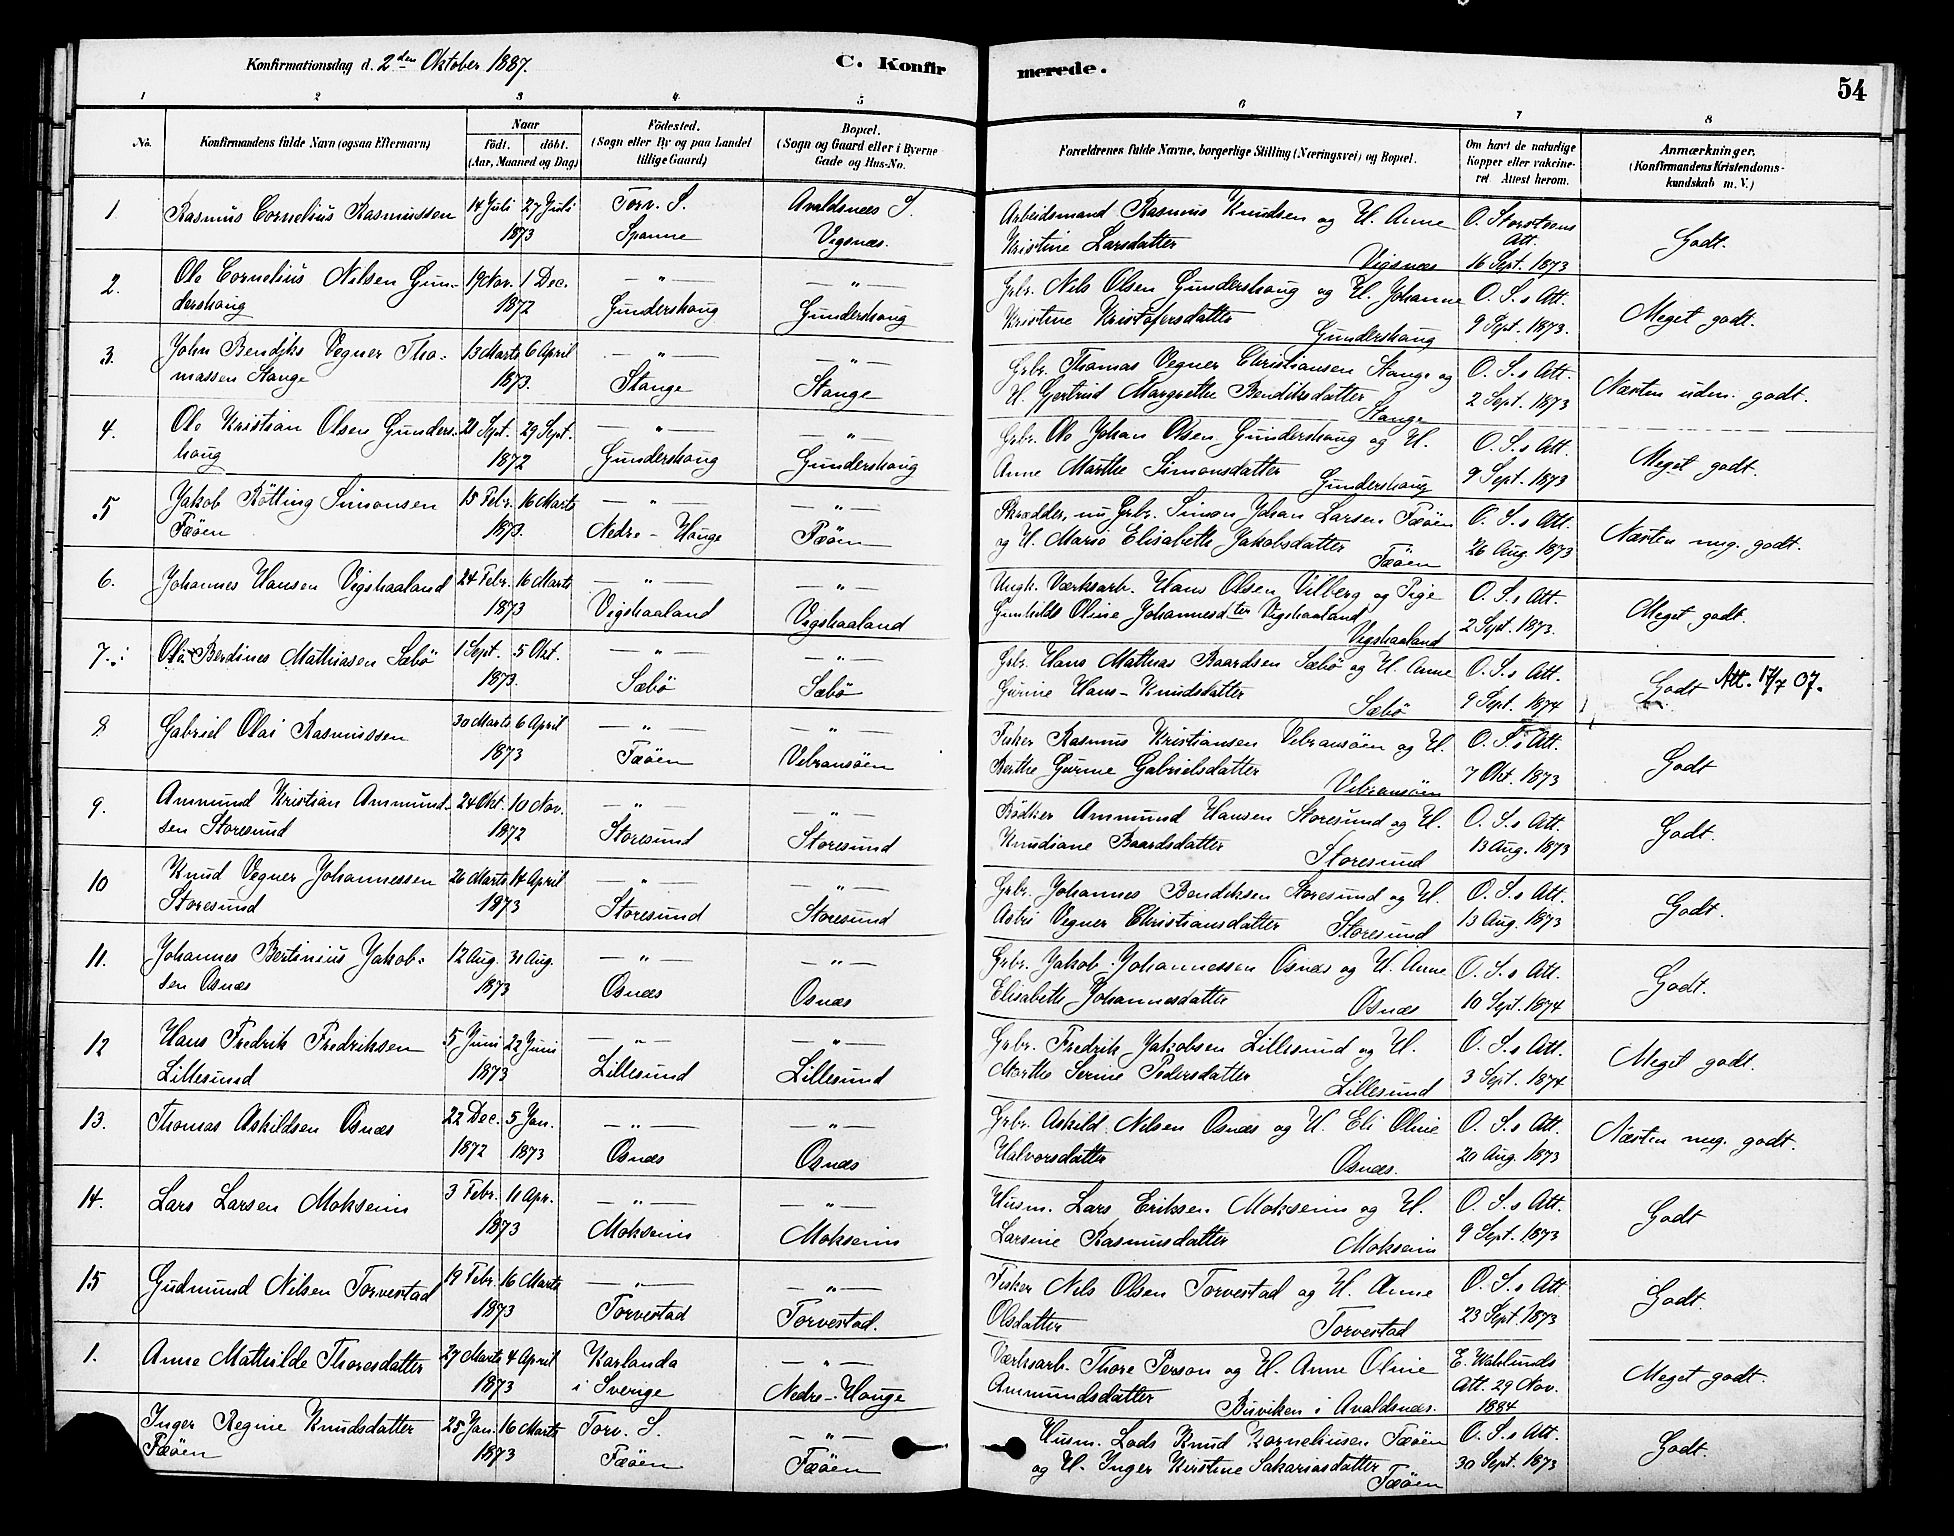 Konfirmationsdag d. 2den Oktober 1887.
C. Konfirmerede.
54
1 2 3 4 5 6 7 8
No.
Konfirmandens fulde Navn (ogsaa Efternavn)
Naar
födt. döbt.
(Aar, Maaned og Dag)
Födested.
(Sogn eller By og paa Landet
tillige Gaard)
Bopæl.
(Sogn og Gaard eller i Byerne
Gade og Hus-No.
Forældrenes fulde Navne, borgerlige Stilling (Næringsvei) og Bopæl.
Om havt de naturlige
Kopper eller vakcine-
ret Attest herom.
Anmærkninger.
(Konfirmandens Kristendoms-
kundskab m. V.)
1. Rasmus Cornelius Rasmussen 14 Juli 27 Juli Torv. S. Avaldsnæs S. Arbeidsmand Rasmus Knudsen og H. Anne O. Storstens
1873 Spanne Vigsnæs. Kristine Larsdatter Vigsnæs Att. 16 Sept. 1873 Godt.
2. Ole Cornelius Nilsen Gun- 19 Nov. 1 Dec. — " — — " — Grbr. Nils Olsen Gundershoug og H. Johanne O. S.s Att.
dershoug 1872 Gundershoug Gundershoug Kristine Kristofersdatter Gundershoug 9 Sept. 1873. Meget godt.
3. John Bendiks Vegner Tho- 13 Marts 6 April — " — — " — Grbr. Thomas Vegner Christiansen Stange og O. S.s Att.
massen Stange 1873. Stange Stange H. Gjertrud Margrethe Bendiksdatter Stange 2 Sept. 1873 Næsten uden. godt.
4. Ole Kristian Olsen Gunders- 28 Sept. 29 Sept. — " — — " — Grbr. Ole Johan Olsen Gundershoug og H. O. S.s Att.
houg 1872 Gundershoug Gundershoug Anne Marthe Simonsdatter Gundershoug 9 Sept. 1873 Meget godt.
5 Jakob Rötting Simonsen 15 Febr. 16 Marts — " — — " — Skrædder, nu Grbr. Simon Johan Larsen Fæöen O. S.s Att.
Fæöen 1873. Nedre-Houge Fæöen og H. Marie Elisabeth Jakobsdatter Fæöen 26 Aug. 1873 Næsten mg. godt.
6. Johannes Hansen Vigshaaland 24 Febr. 16 Marts — " — — " — Ungk. Værksarb. Hans Olsen Vilberg og Pige O. S.s Att.
1873 Vigshaaland Vigshaaland Gunhilde Oline Johannesdter Vigshaaland Vigshaaland 2 Sept. 1873. Meget godt.
7. Ole Berdines Mathiasen Sæbö 1 Sept. 5 Okt. — " — — " — Grbr. Hans Mathias Baardsen Sæbö og H. Anne O. S.s Att.
1873. Sæbö Sæbö Gurine Hans-Knudsdatter Sæbö 9 Sept. 1874 Godt Att. 17/7 07.
8 Gabriel Olai Rasmussen 30 Marts 6 April — " — — " — Fisker Rasmus Kristiansen Vibransöen og H. O. S.s Att.
1873 Fæöen Vibransöen Berthe Gurine Gabrielsdatter Vibransöen 7 Okt. 1873 Godt
9. Ammund Kristian Ammund- 24 Okt. 10 Nov. — " — — " — Bödker Ammund Hansen Storesund og H. O. S.s Att.
sen Storesund 1872 Storesund Storesund Knudiane Baardsdatter Storesund 13 Aug. 1873 Godt.
10 Knud Vegner Johannessen 26 Marts 14 April — " — — " — Grbr. Johannes Bendiksen Storesund og H. O. S.s Att.
Storesund 1873 Storesund Storesund Asbri Vegner Christiansdatter Storesund 13 Aug. 1873 Godt.
11. Johannes Bertinius Jakob- 12 Aug. 31 Aug. — " — — " — Grbr. Jakob Johannessen Osnæs og H. Anne O. S.s Att.
sen Osnæs 1873 Osnæs Osnæs Elisabeth Johannesdatter Osnæs 10 Sept. 1874 Godt.
12 Hans Fredrik Fredriksen 5 Juni 22 Juni — " — — " — Grbr. Fredrik Jakobsen Lillesund og H. O. S.s Att.
Lillesund 1873 Lillesund Lillesund Marthe Serine Pedersdatter Lillesund 3 Sept. 1874 Meget godt.
13. Thomas Askildsen Osnæs 22 Dec. 5 Jan. — " — — " — Grbr. Askild Nilsen Osnæs og H. Eli Oline O. S.s Att.
1872 1873 Osnæs Osnæs Halvorsdatter Osnæs. 20 Aug. 1873 Næsten mg. godt.
14. Lars Larsen Mokseim 3 Febr. 11 Apr. — " — — " — Husm. Lars Eriksen Mokseim og H. O. S.s Att.
1873 Mokseim Mokseim Larsine Rasmusdatter Mokseim 9 Sept. 1873 Godt
15 Gudmund Nilsen Torvestad 19 Febr. 16 Marts — " — — " — Fisker Nils Olsen Torvestad og H. Anne O. S.s Att.
1873 Torvestad Torvestad. Olsdatter Torvestad 23 Sept. 1873 Godt.
1. Anne Mathilde Thoresdatter 27 Marts 4 April Karlanda — " — Værksarb. Thore Person og H. Anne Oline E. Wahlunds
1873 i Sverige Nedre-Houge Ammundsdatter Busviken i Avaldsnæs. Att. 29 Nov. 1884 Meget godt.
Inger Regine Knudsdatter 25 Jan. 16 Marts Torv. S. — " — Husm. Lods Knud Korneliusen Fæöen O. S.s Att.
Fæöen 1873 Fæöen Fæöen og H. Inger Kirstine Sakariasdatter Fæöen 30 Sept. 1873 Godt.